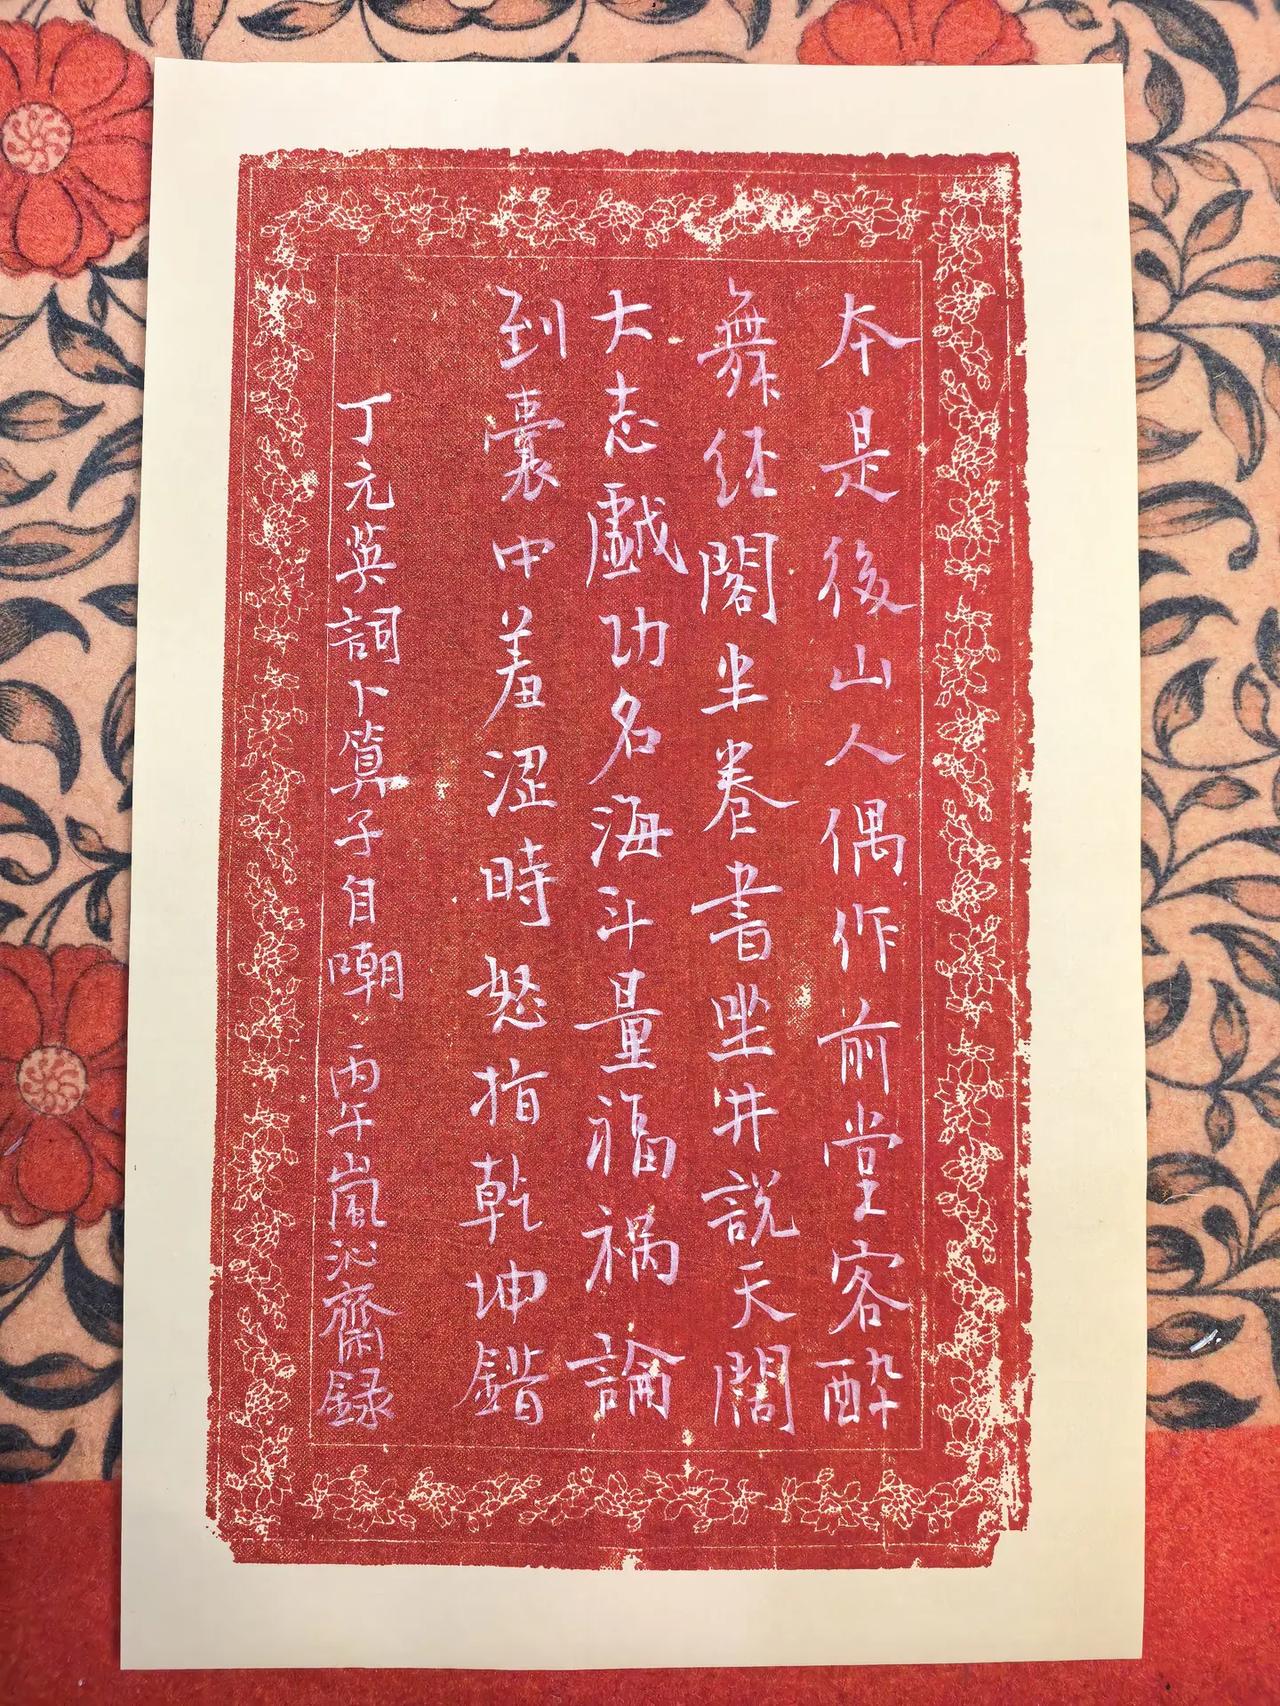 本是後山人偶作前堂客醉
舞经閣半卷書坐井説天闊
大志戲功名海斗量福祸論
到囊中羞涩時怒指乾坤錯
丁元英詞卜算子自嘲 丙午嵐沁齋録